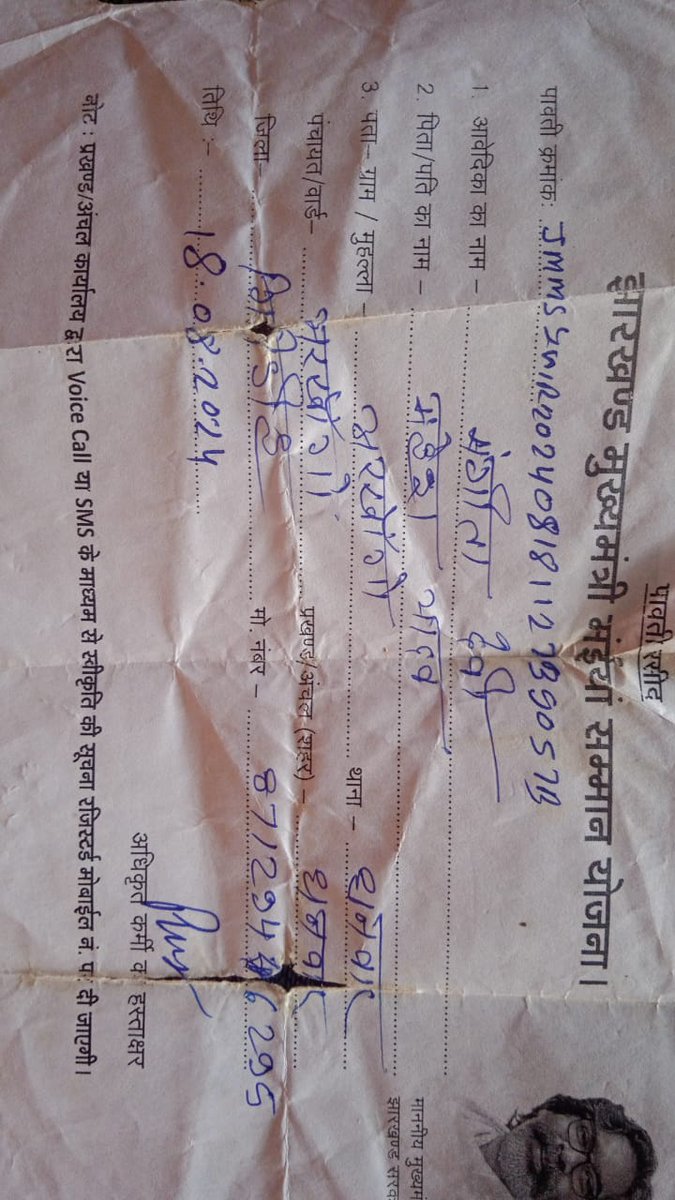 पावती रसीद
झारखण्ड मुख्यमंत्री मंईयां सम्मान योजना।
पावती क्रमांक:
1. आवेदिका का नाम – संगीता देवी
2. पिता/पति का नाम – महेन्द्र यादव
3. पता– ग्राम / मुहल्ला – अरखांगो थाना – धनवार
पंचायत/वार्ड– अरखांगो प्रखण्ड/अंचल (शहर) – धनवार
जिला– गिरिडीह मो. नंबर –
तिथि :– 18.08.2024
अधिकृत कर्मी का हस्ताक्षर
नोट : प्रखण्ड/अंचल कार्यालय द्वारा Voice Call या SMS के माध्यम से स्वीकृति की सूचना रजिस्टर्ड मोबाईल नं. पर दी जाएगी।
माननीय
झारखण्ड